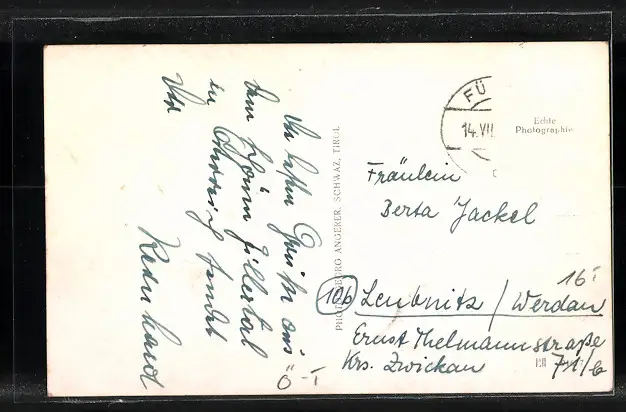 Die besten Grüße aus
dem schönen Zillertal
in Österreich sendet
Dir
Reinhard
Ö - I
PHOTO GEORG ANGERER, SCHWAZ, TIROL
FÜ
14.VII
Echte
Photographie
Fräulein
Berta Jackel
16 I
10b Leubnitz / Werdau
Ernst Thelmannstraße
Krs. Zwickau 71/b